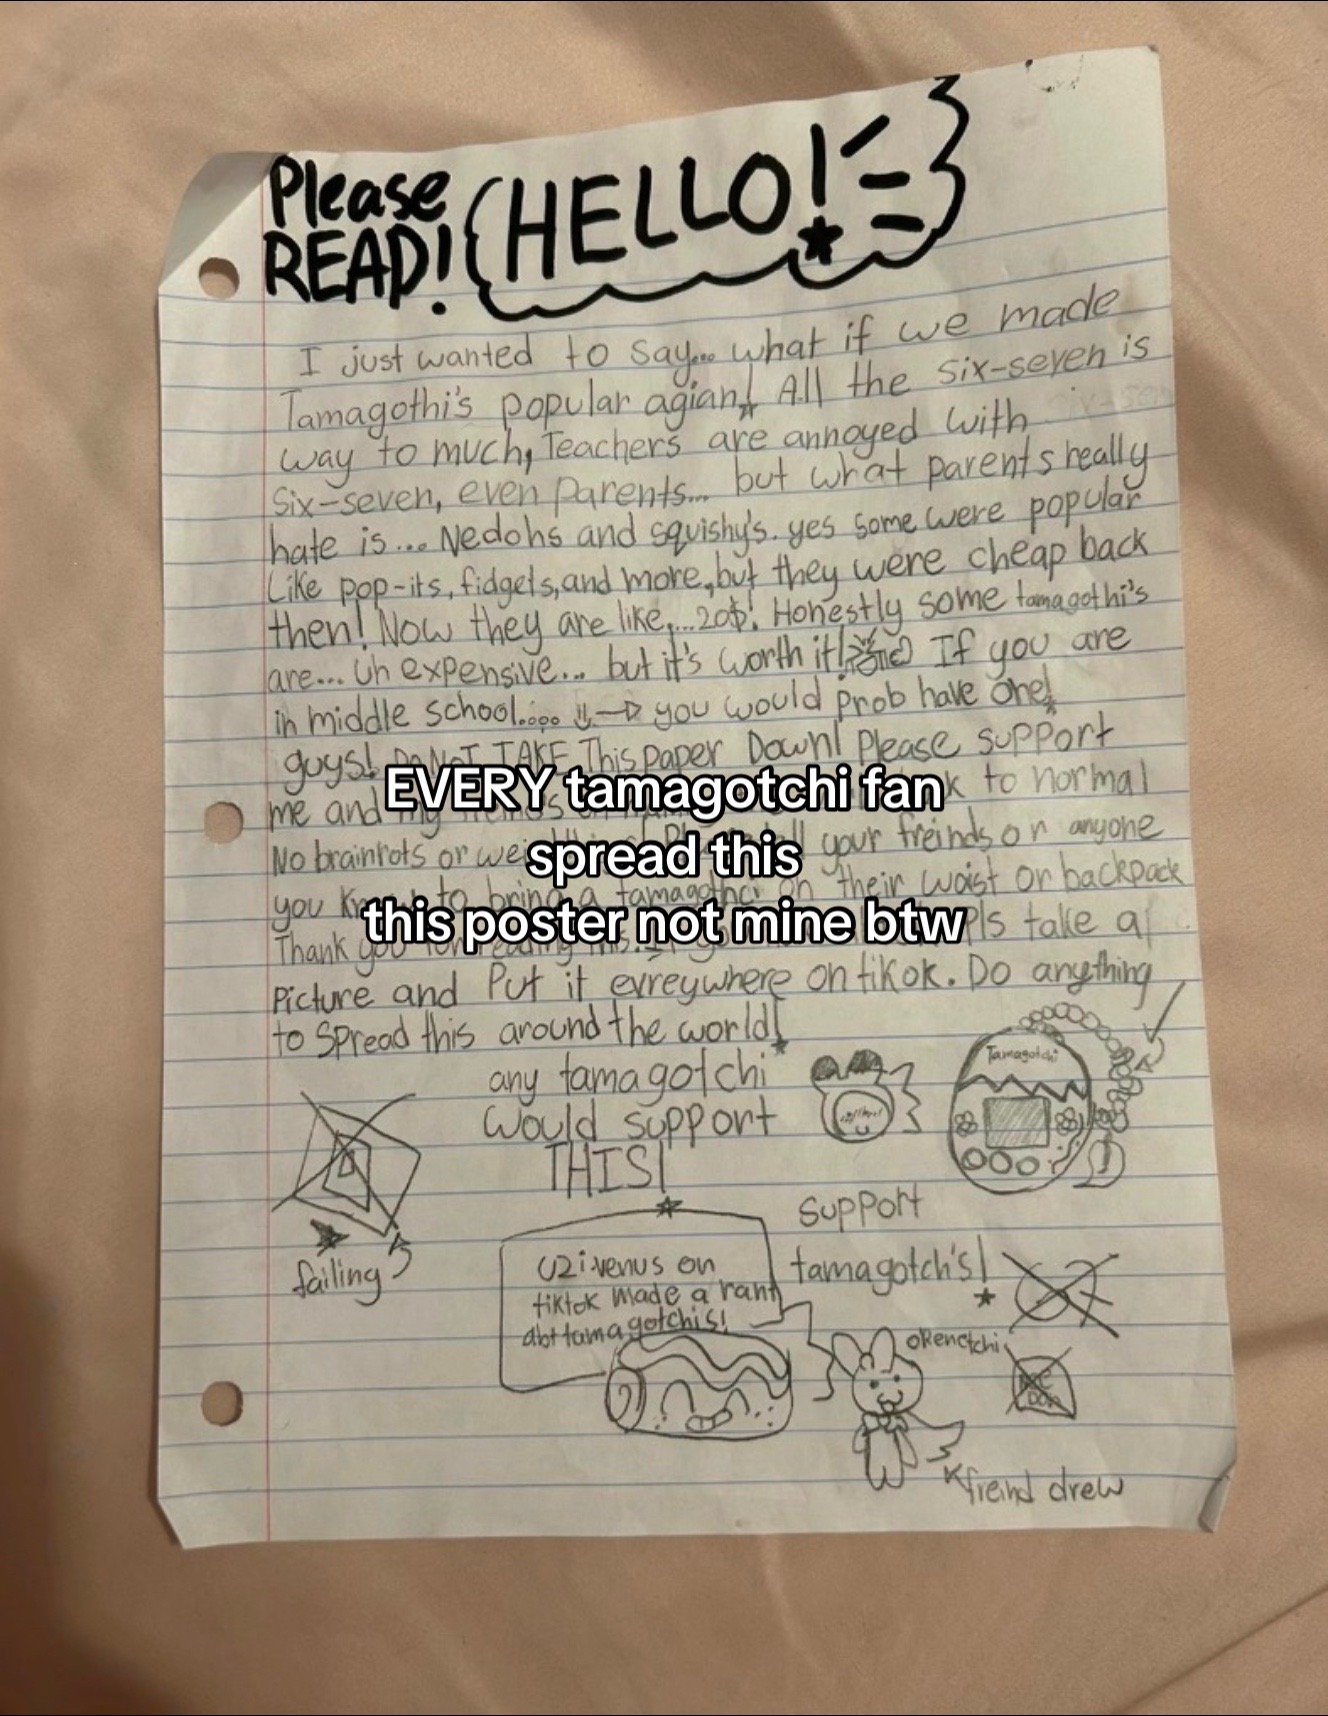 Please
READ!
HELLO!
I just wanted to say... what if we made
Tamagothi's popular agian! All the six-seven is
way to much, Teachers are annoyed with
six-seven, even parents... but what parents really
hate is... Nedohs and squishy's. yes some were popular
Like pop-its, fidgets, and more, but they were cheap back
then! Now they are like,...20$! Honestly some tamagothi's
are... uh expensive... but it's worth it! If you are
in middle school..... you would prob have one!
guys! DO NOT TAKE This paper Down! Please support
me and my freinds to normal
No brainrots or your freinds or anyone
you to bring a tamagothci on their waist or backpack
Thank you for reading this. pls take a
Picture and Put it evreywhere on tikok. Do anything
to spread this around the world!
any tamagotchi
would support
THIS!
EVERY tamagotchi fan
spread this
this poster not mine btw
Tamagotchi
failing
support
tamagotch's!
uzi.venus on
tiktok made a rant
abt tamagotchis!
freind drew